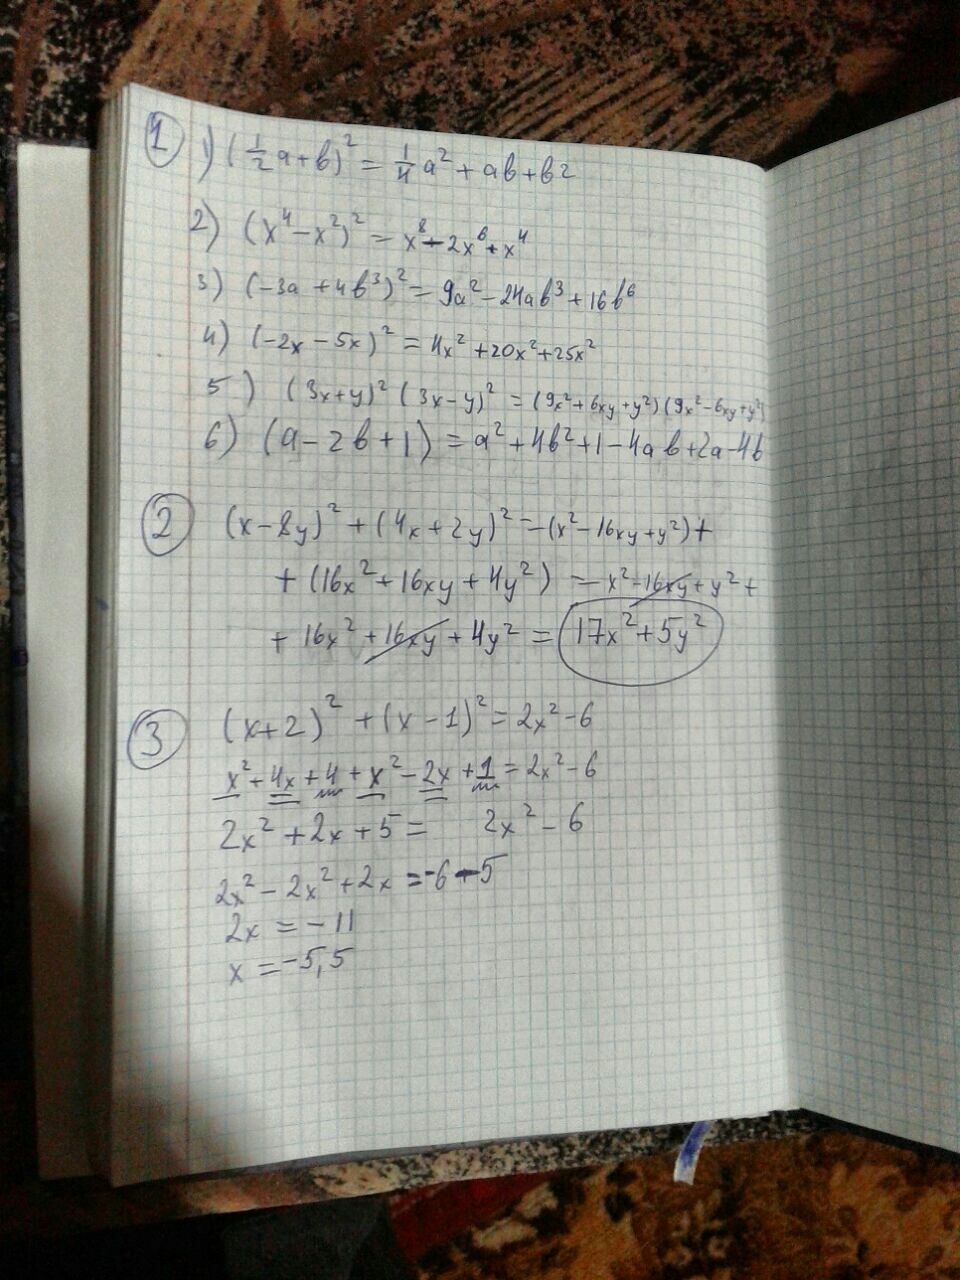 1 1) (1/2 a + b)² = 1/4 a² + ab + b2
2) (x⁴ - x²)² = x⁸ - 2x⁶ + x⁴
3) (-3a + 4b³)² = 9a² - 24ab³ + 16b⁶
4) (-2x - 5x)² = 4x² + 20x² + 25x²
5) (3x+y)² (3x-y)² = (9x² + 6xy + y²)(9x² - 6xy + y²)
6) (a - 2b + 1) = a² + 4b² + 1 - 4ab + 2a - 4b
2 (x - 8y)² + (4x + 2y)² = (x² - 16xy + y²) +
+ (16x² + 16xy + 4y²) = x² - 16xy + y² +
+ 16x² + 16xy + 4y² = 17x² + 5y²
3 (x+2)² + (x-1)² = 2x² - 6
x² + 4x + 4 + x² - 2x + 1 = 2x² - 6
2x² + 2x + 5 = 2x² - 6
2x² - 2x² + 2x = -6 - 5
2x = -11
x = -5,5